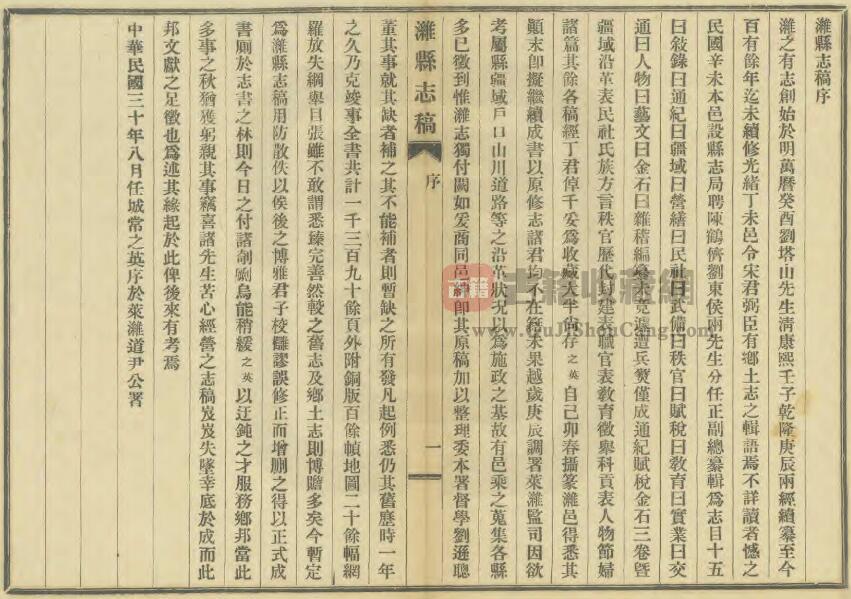 濰縣志稿序
濰之有志創始於明萬曆癸酉劉塔山先生淸康熙壬子乾隆庚辰兩經續纂至今
百有餘年迄未續修光緒丁未邑令宋君弼臣有鄕土志之輯語焉不詳讀者憾之
民國辛未本邑設縣志局聘陳鶴儕劉東侯兩先生分任正副總纂輯爲志目十五
曰敘錄曰通紀曰疆域曰營繕曰民社曰武備曰秩官曰賦稅曰敎育曰實業曰交
通曰人物曰藝文曰金石曰雜稽編纂未竟遽遭兵燹僅成通紀賦稅金石三卷曁
疆域沿革表民社氏族方言秩官歷代封建表職官表敎育徵舉科貢表人物節婦
諸篇其餘各稿經丁君倬千妥爲收藏大半尙存之英自己卯春攝篆濰邑得悉其
顚末卽擬繼續成書以原修志諸君均不在籍未果越歲庚辰調署萊濰監司因欲
考屬縣疆域戶口山川道路等之沿革狀况以爲施政之基故有邑乘之蒐集各縣
多已徵到惟濰志獨付闕如爰商同邑紳卽其原稿加以整理委本署督學劉遜聰
濰縣志稿
序
一
董其事就其缺者補之其不能補者則暫缺之所有發凡起例悉仍其舊歷時一年
之久乃克竣事全書共計一千三百九十餘頁外附銅版百餘幀地圖二十餘幅網
羅放失綱舉目張雖不敢謂悉臻完善然較之舊志及鄕土志則博贍多矣今暫定
爲濰縣志稿用防散佚以俟後之博雅君子校讎謬誤修正而增删之得以正式成
書厠於志書之林則今日之付諸剞劂烏能稍緩之英以迂鈍之才服務鄕邦當此
多事之秋猶獲躬親其事竊喜諸先生苦心經營之志稿岌岌失墜幸底於成而此
邦文獻之足徵也爲述其緣起於此俾後來有考焉
中華民國三十年八月任城常之英序於萊濰道尹公署
古籍
古籍收藏網
www.GuJiShouCang.com